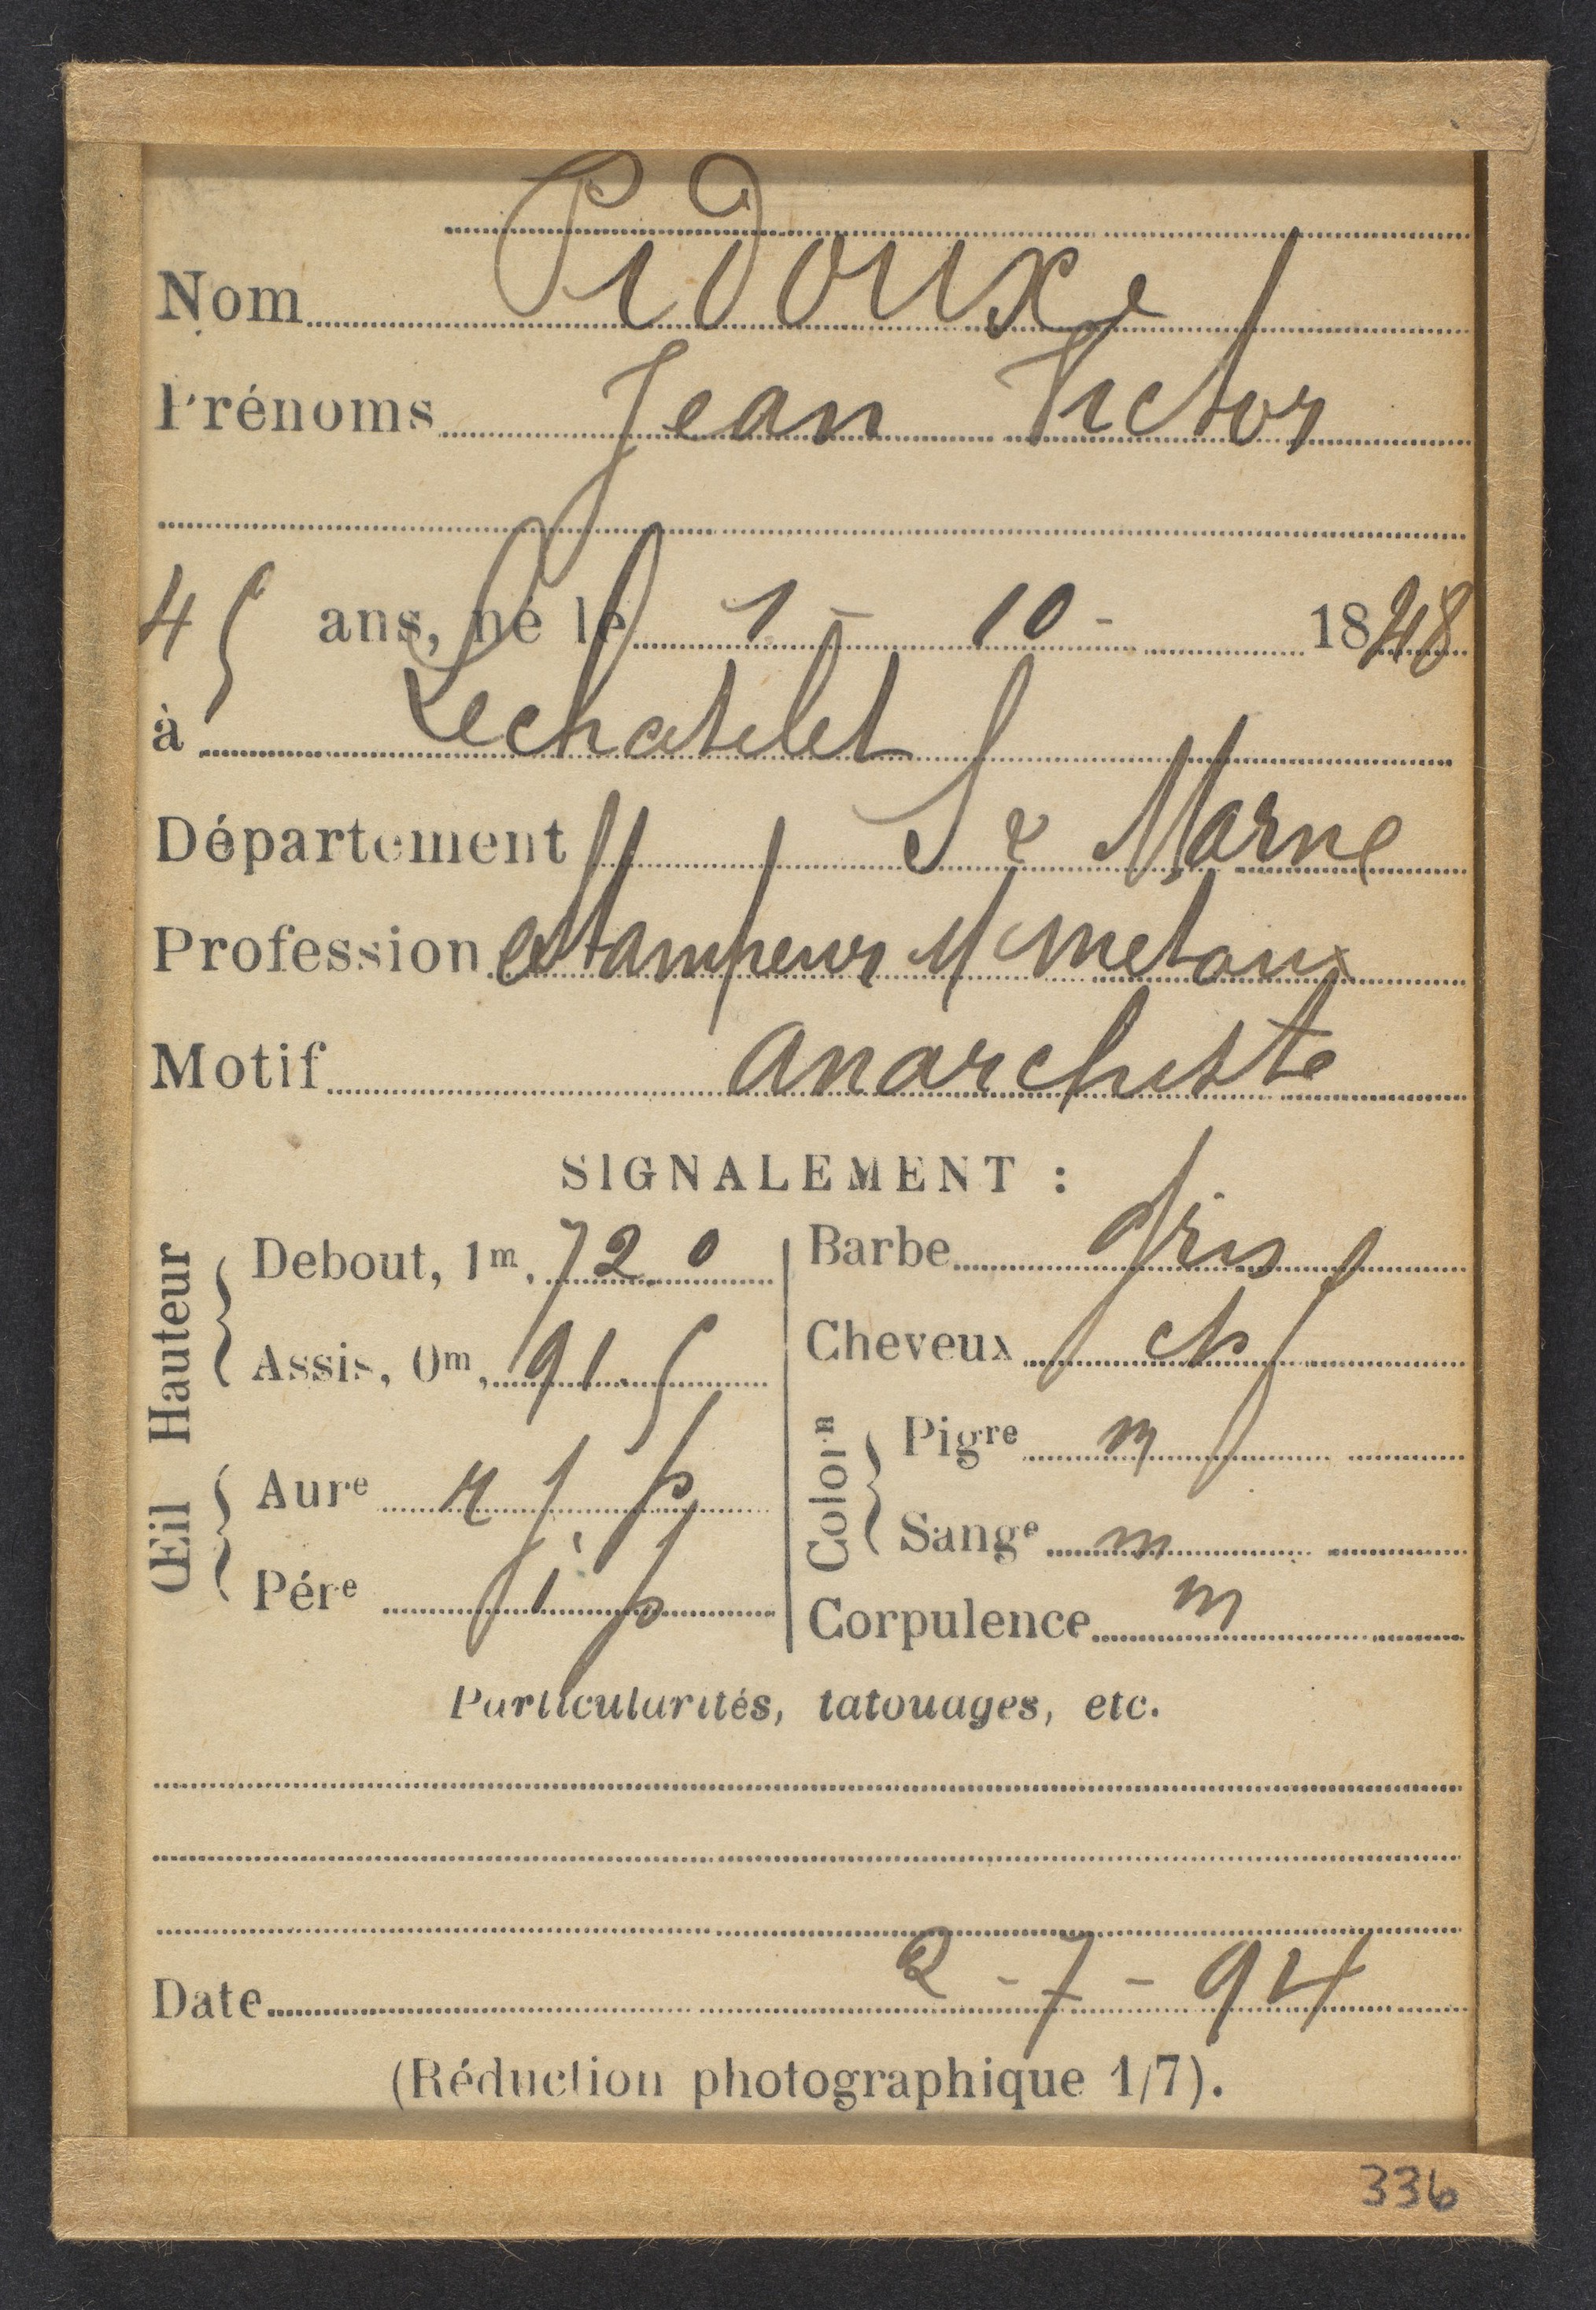 Nom Pidouxe
Prénoms Jean Victor
45 ans, né le 1 - 10 - 1848
à Lechatelet
Département S & Marne
Profession estampeur s/ metaux
Motif anarchiste
SIGNALEMENT :
Hauteur
Debout, 1m, 72.0
Assis, 0m, 91.5
Œil
Aure r j. p
Pére j i p
Barbe gris
Cheveux ch f
Colorn
Pigre m
Sange m
Corpulence m
Particularités, tatouages, etc.
Date 2 - 7 - 94
(Réduction photographique 1/7).
336